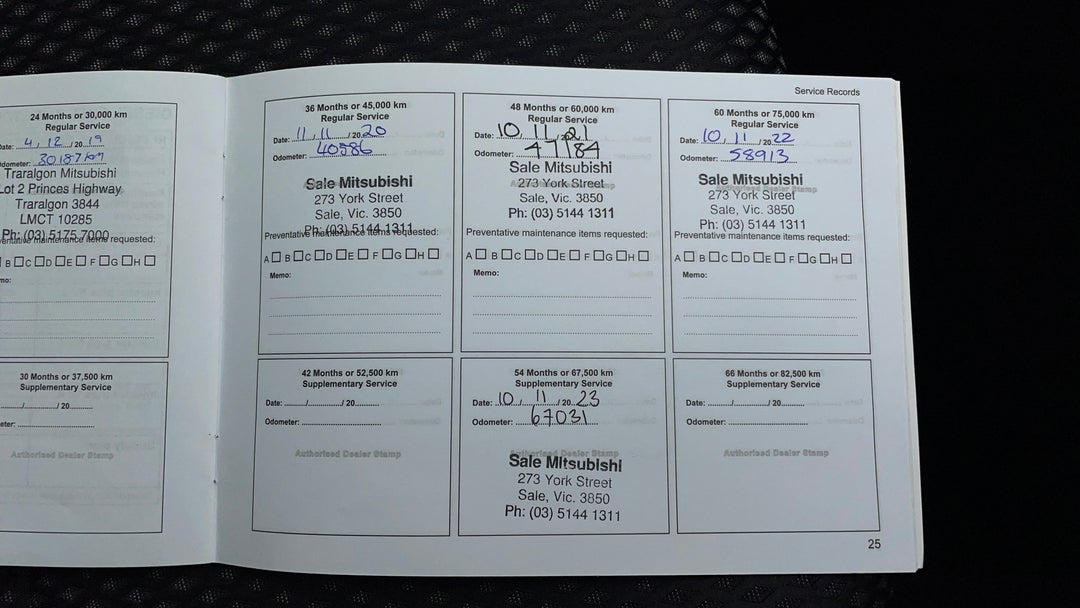 Service Records
24 Months or 30,000 km
Regular Service
Date: 4, 12 / 2019
dometer: 30187km
Traralgon Mitsubishi
Lot 2 Princes Highway
Traralgon 3844
LMCT 10285
Ph: (03) 5175 7000
ventative maintenance items requested:
B C D E F G H
mo:
36 Months or 45,000 km
Regular Service
Date: 11, 11 / 2020
Odometer: 40586
Authorised Dealer Stamp
Sale Mitsubishi
273 York Street
Sale, Vic. 3850
Ph: (03) 5144 1311
Preventative maintenance items requested:
A B C D E F G H
Memo:
48 Months or 60,000 km
Regular Service
Date: 10, 11 / 2021
Odometer: 47184
Sale Mitsubishi
Authorised Dealer Stamp
273 York Street
Sale, Vic. 3850
Ph: (03) 5144 1311
Preventative maintenance items requested:
A B C D E F G H
Memo:
60 Months or 75,000 km
Regular Service
Date: 10, 11 / 2022
Odometer: 58913
Sale Mitsubishi
Authorised Dealer Stamp
273 York Street
Sale, Vic. 3850
Ph: (03) 5144 1311
Preventative maintenance items requested:
A B C D E F G H
Memo:
30 Months or 37,500 km
Supplementary Service
/ / 20
eter:
Authorised Dealer Stamp
42 Months or 52,500 km
Supplementary Service
Date: / / 20
Odometer:
Authorised Dealer Stamp
54 Months or 67,500 km
Supplementary Service
Date: 10 / 11 / 20 23
Odometer: 67031
Authorised Dealer Stamp
Sale Mitsubishi
273 York Street
Sale, Vic. 3850
Ph: (03) 5144 1311
66 Months or 82,500 km
Supplementary Service
Date: / / 20
Odometer:
Authorised Dealer Stamp
25